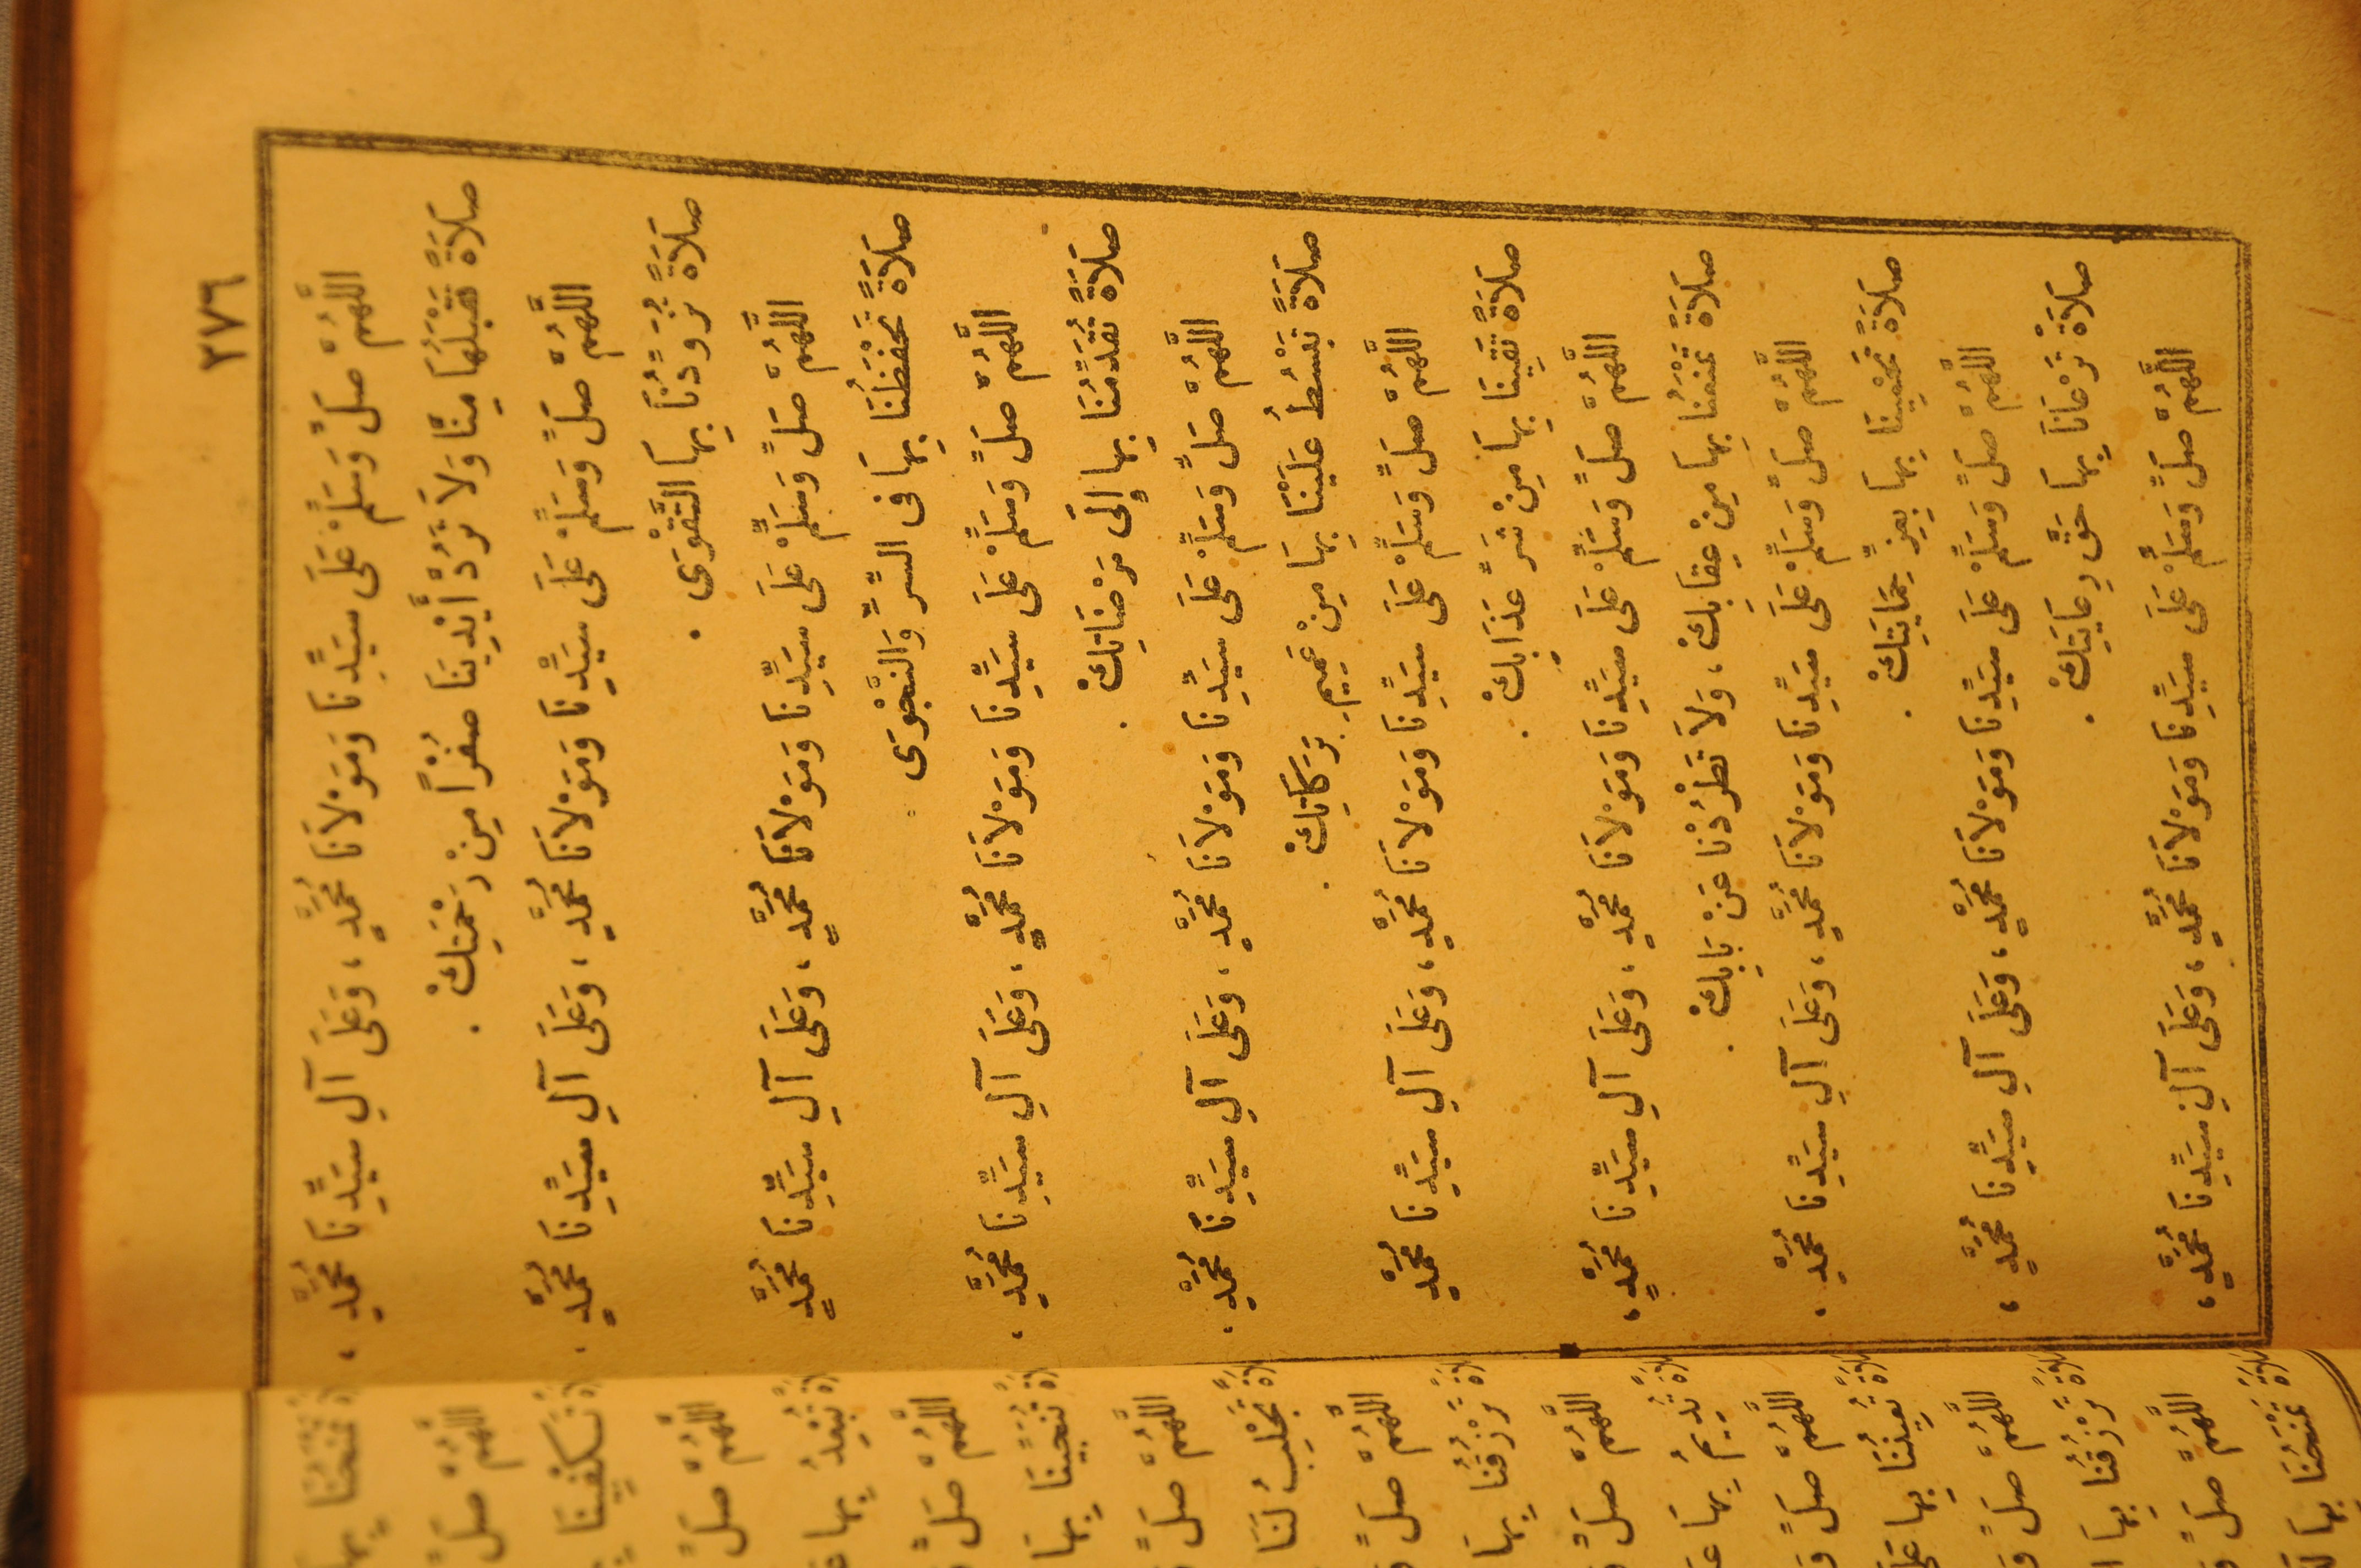 ٢٧٦
اللَّهُمَّ صَلِّ وَسَلِّمْ عَلَى سَيِّدِنَا وَمَوْلَانَا مُحَمَّدٍ، وَعَلَى آلِ سَيِّدِنَا مُحَمَّدٍ،
صَلَاةً تَقْبَلُهَا مِنَّا وَلَا تَرُدَّ أَيْدِيَنَا صُفْراً مِنْ رَحْمَتِكْ.
اللَّهُمَّ صَلِّ وَسَلِّمْ عَلَى سَيِّدِنَا وَمَوْلَانَا مُحَمَّدٍ، وَعَلَى آلِ سَيِّدِنَا مُحَمَّدٍ.
صَلَاةً تُزَوِّدُنَا بِهَا التَّقْوَى.
اللَّهُمَّ صَلِّ وَسَلِّمْ عَلَى سَيِّدِنَا وَمَوْلَانَا مُحَمَّدٍ، وَعَلَى آلِ سَيِّدِنَا مُحَمَّدٍ
صَلَاةً تَحْفَظُنَا بِهَا فِى السِّرِّ وَالنَّجْوَى.
اللَّهُمَّ صَلِّ وَسَلِّمْ عَلَى سَيِّدِنَا وَمَوْلَانَا مُحَمَّدٍ، وَعَلَى آلِ سَيِّدِنَا مُحَمَّدٍ،
صَلَاةً تُقَدِّمُنَا بِهَا إِلَى مَرْضَاتِكْ.
اللَّهُمَّ صَلِّ وَسَلِّمْ عَلَى سَيِّدِنَا وَمَوْلَانَا مُحَمَّدٍ، وَعَلَى آلِ سَيِّدِنَا مُحَمَّدٍ.
صَلَاةً تَبْسُطُ عَلَيْنَا بِهَا مِنْ عَمِيمِ بَرَكَاتِكْ.
اللَّهُمَّ صَلِّ وَسَلِّمْ عَلَى سَيِّدِنَا وَمَوْلَانَا مُحَمَّدٍ، وَعَلَى آلِ سَيِّدِنَا مُحَمَّدٍ
صَلَاةً تَقِينَا بِهَا مِنْ شَرِّ عَذَابِكْ.
اللَّهُمَّ صَلِّ وَسَلِّمْ عَلَى سَيِّدِنَا وَمَوْلَانَا مُحَمَّدٍ، وَعَلَى آلِ سَيِّدِنَا مُحَمَّدٍ،
صَلَاةً تَمْنَعُنَا بِهَا مِنْ عِقَابِكْ، وَلَا تَطْرُدْنَا عَنْ بَابِكْ.
اللَّهُمَّ صَلِّ وَسَلِّمْ عَلَى سَيِّدِنَا وَمَوْلَانَا مُحَمَّدٍ، وَعَلَى آلِ سَيِّدِنَا مُحَمَّدٍ.
صَلَاةً تَحْمِينَا بِهَا بِعِزِّ حِمَايَتِكْ.
اللَّهُمَّ صَلِّ وَسَلِّمْ عَلَى سَيِّدِنَا وَمَوْلَانَا مُحَمَّدٍ، وَعَلَى آلِ سَيِّدِنَا مُحَمَّدٍ،
صَلَاةً تَرْعَانَا بِهَا حَقَّ رِعَايَتِكْ.
اللَّهُمَّ صَلِّ وَسَلِّمْ عَلَى سَيِّدِنَا وَمَوْلَانَا مُحَمَّدٍ، وَعَلَى آلِ سَيِّدِنَا مُحَمَّدٍ،
اللَّهُمَّ صَلِّ
اللَّهُمَّ صَلِّ
اللَّهُمَّ صَلِّ
تُنَجِّينَا بِهَا
اللَّهُمَّ صَلِّ
تَجْلِبُ لَنَا
اللَّهُمَّ صَلِّ
تَرْزُقُنَا بِهَا
اللَّهُمَّ صَلِّ
تُدِيمُ بِهَا
اللَّهُمَّ صَلِّ
تُعِينُنَا بِهَا
اللَّهُمَّ صَلِّ
تَرْزُقُنَا بِهَا
اللَّهُمَّ صَلِّ
تَمْنَحُنَا بِهَا